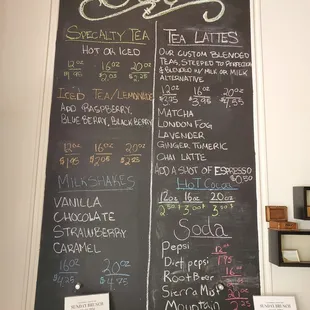 Specialty Tea
Hot or Iced
12oz 16oz 20oz
$1.95 $2.05 $2.25
Iced Tea/Lemonade
Add Raspberry,
Blueberry, Blackberry
12oz 16oz 20oz
$1.95
Milkshakes
Vanilla
Chocolate
Strawberry
Caramel
16oz 20oz
$4.25 $4.75
Tea Lattes
Our custom blended
teas, steeped to perfection
& blended w/ milk or milk
alternative
12oz 16oz 20oz
$3.95 $4.55
Matcha
London Fog
Lavender
Ginger Tumeric
Chai Latte
Add a shot of Espresso
$0.50
Hot Cocoa
12oz 16oz 20oz
Soda
Pepsi
Diet pepsi
Root Beer
Sierra Mist
Mountain
Sunday Brunch